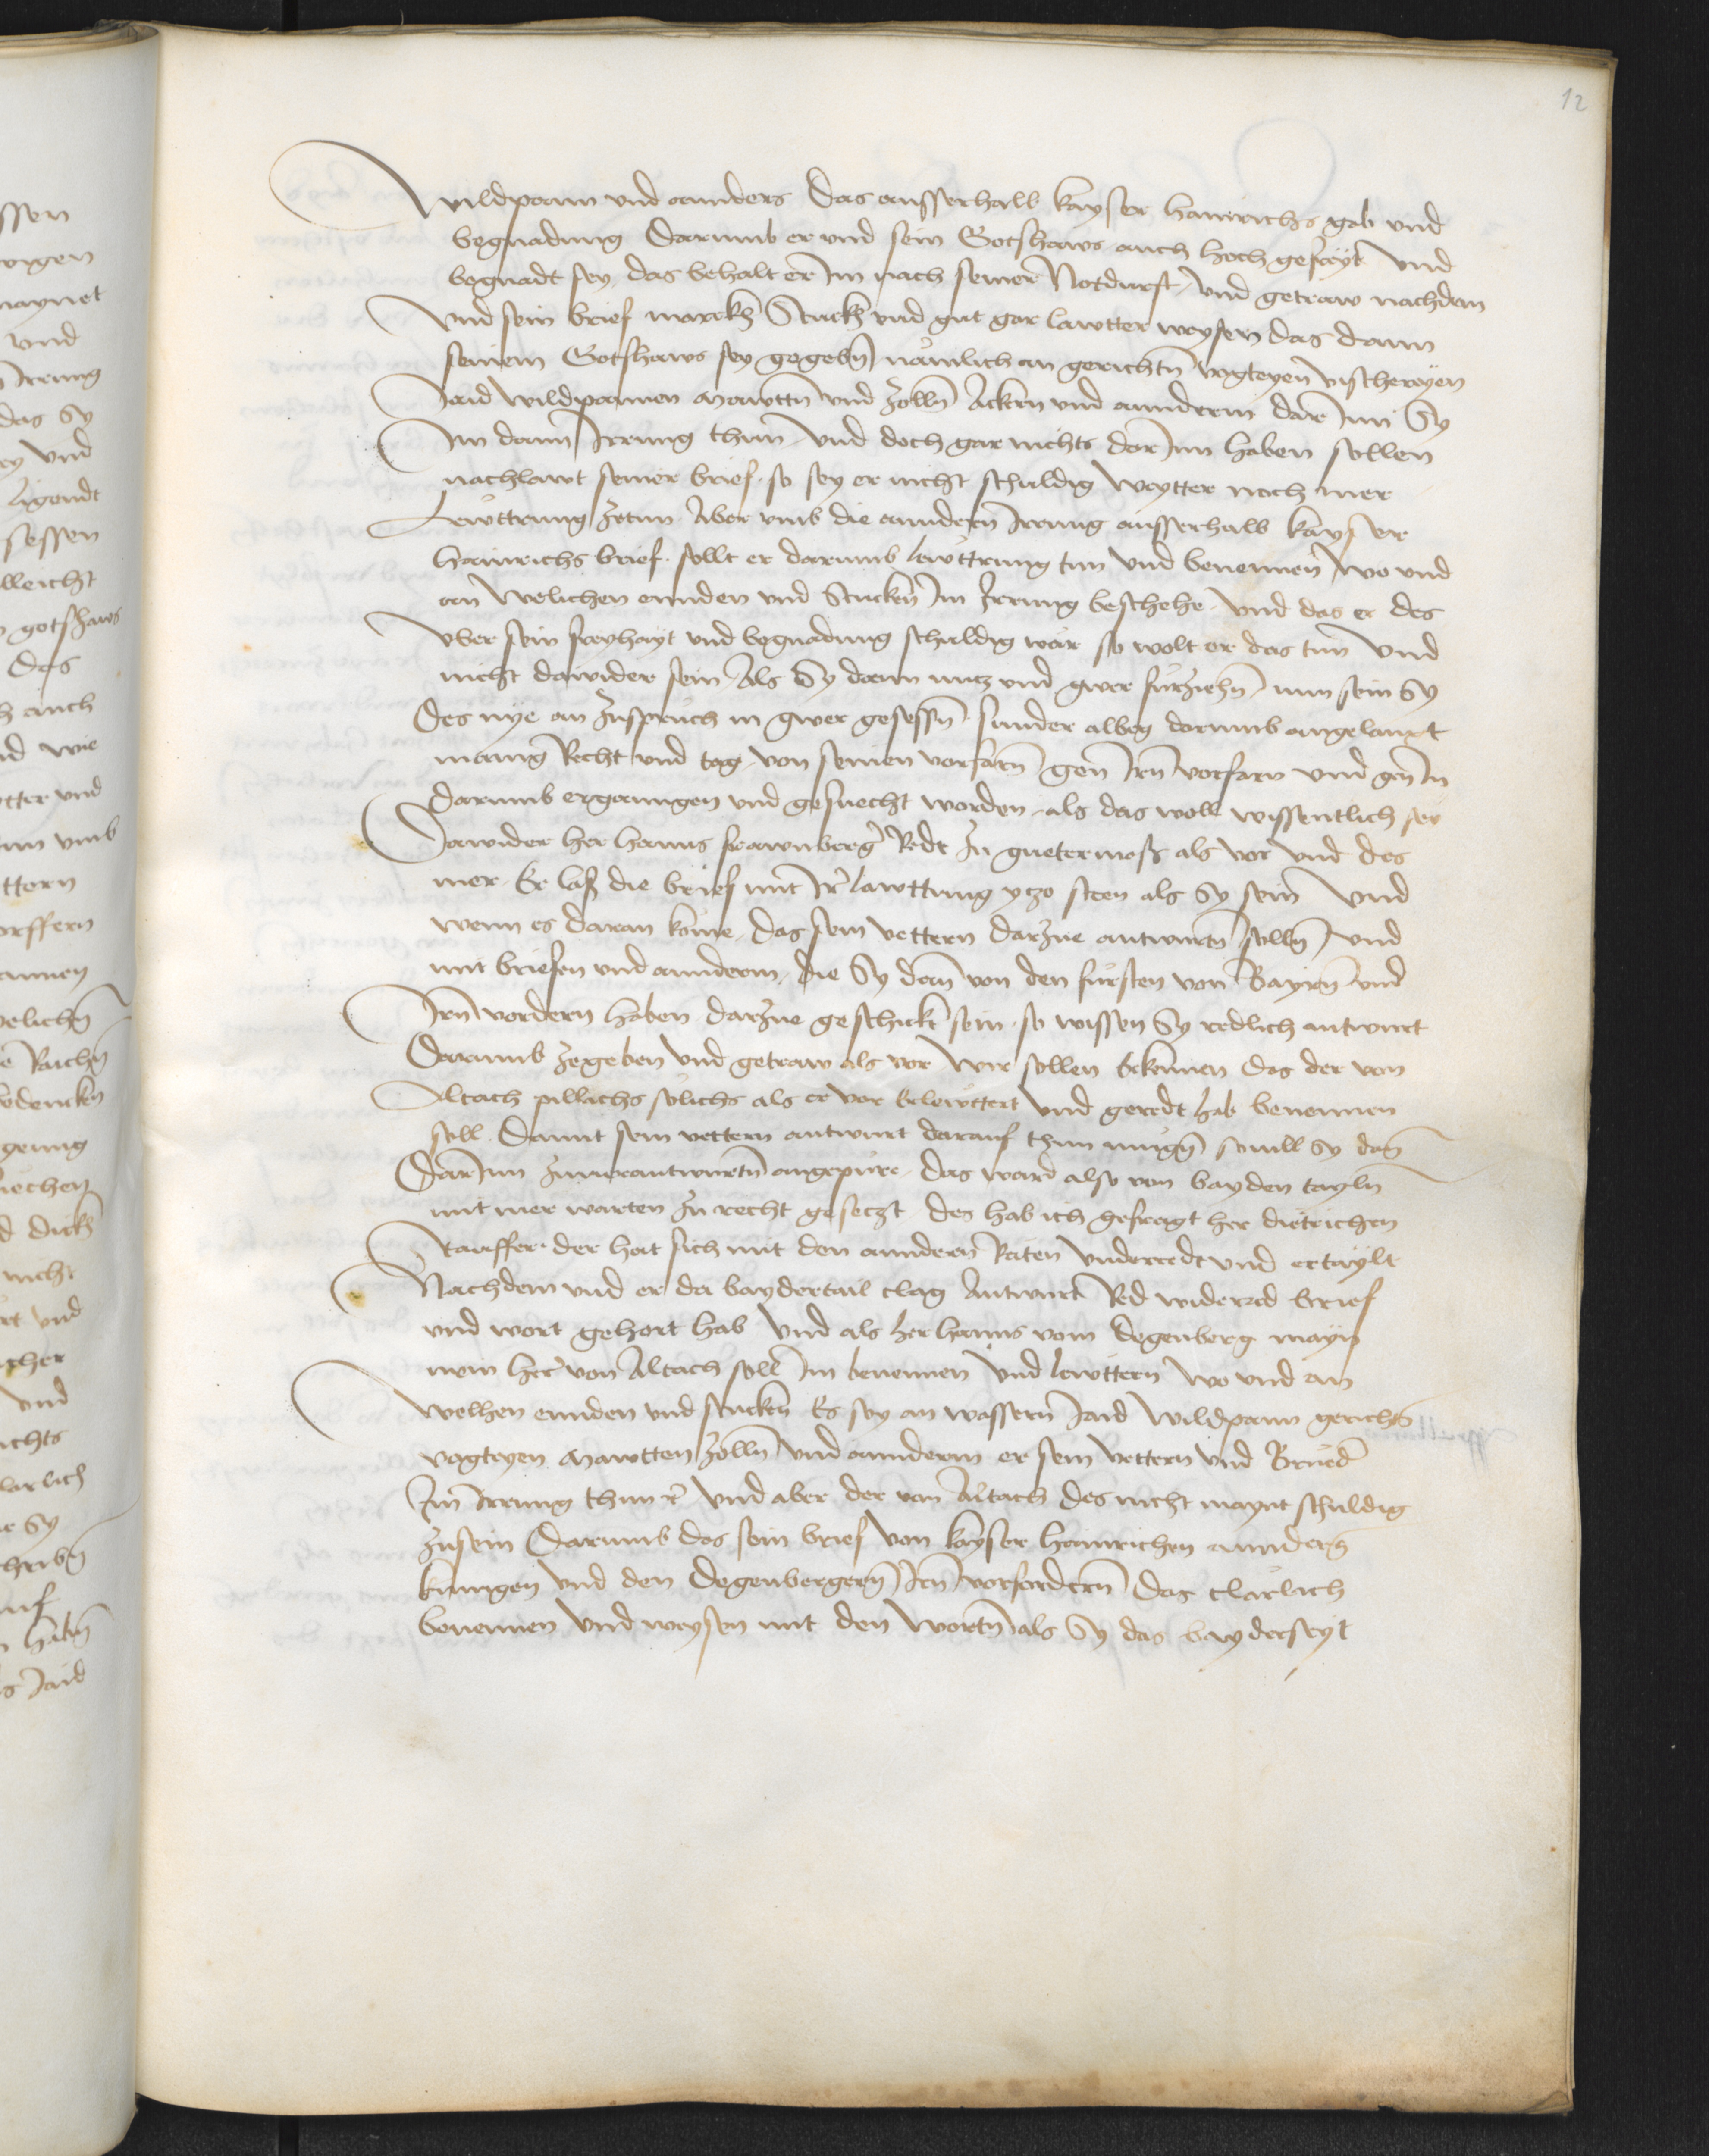 12
Wildpann und annders das ausserhalb kayser Hainrichs gab und
begnadung darumb er und sein Gotshaws auch hoch gefreyt und
begnadt sey, das behalt er Im nach seiner Notdurfft, und getraw nachdem
Und sein brief marckh Stuckh und gut gar lawtter weysen das dann
seinem Gotshaws sey gegebn, nämlich an gerichtn vogteyen vischereyen
Jaid wildpannen Mawttn und Zolln Äckern und annderm dar Inn Sy
Im dann Irrung thun, und doch gar nichts dar Inn haben sollen
nachlawt seiner brief. so sey er nicht schuldig weytter noch mer
Lewttrung zetun. Aber umb die anndern Irrung ausserhalb kayser
Hainrichs brief. sollt er darumb lewttrung tun und benennen, wo und
an welichen ennden und Stucken Im Irrung beschehe. und das er des
Uber sein freyhayt und begnadung schuldig wär so wolt er das tun und
nicht dawider sein. Als Sy dann nutz und gwer fürziehn, nun sein Sy
des nye an Zuspruch in gwer gesessn. sunder albeg darumb angelangt
manig Recht und tag. von seinen vorfarn gen Irn vorfarn und gen In
darumb ergangen und gesuecht worden, als das woll wissentlich sey
Dawider her Hanns frawnberger Redt In gueter mass als vor und des
mer. Er lass die brief mit Ir lawttung yczo steen als Sy sein und
wenn es daran kome, das sein vettern darzue antwurtn solln, und
mit briefen und annderm, die Sy dann von den fürsten von Bayrn und
Irn vordern haben darzue geschickt sein. so wissen Sy redlich antwurt
Darumb zegeben und getraw als vor wir sollen Erkennen das der von
Altach pillichs solichs als er vor Erlewttert und geredt hab benennen
soll. Damit sein vettern antwurt darauf thun mugn sovill Sy dann
Dar Inn zuverantwurtn angepüre. das ward also von bayden tayln
mit mer warten zu recht geseczt. des hab ich gefragt her dietrichen
Stauffer. der hat sich mit den anndern Räten underredt und ertaylt
Nachdem und er da baydertail clag Antwurt Red widerred brief
und wort gehort hab und als her Hanns vom Degenberg mayn
mein her von Altach soll Im benennen und lewttern wo und an
welhen ennden und stucken Es sey an wassern Jaid wildpann gerichts
vogteyen Mawtten Zolln und annderm er sein vettern und Brueder
Im Irrung thun &c und aber der von Altach des nicht maynt schuldig
zusein Darumb das sein brief von kayser Hainrichen annders
kunigen und den Degenbergern Irn vorfordern das clärlich
benennen und weysen mit den worttn als Sy das bayderseyt